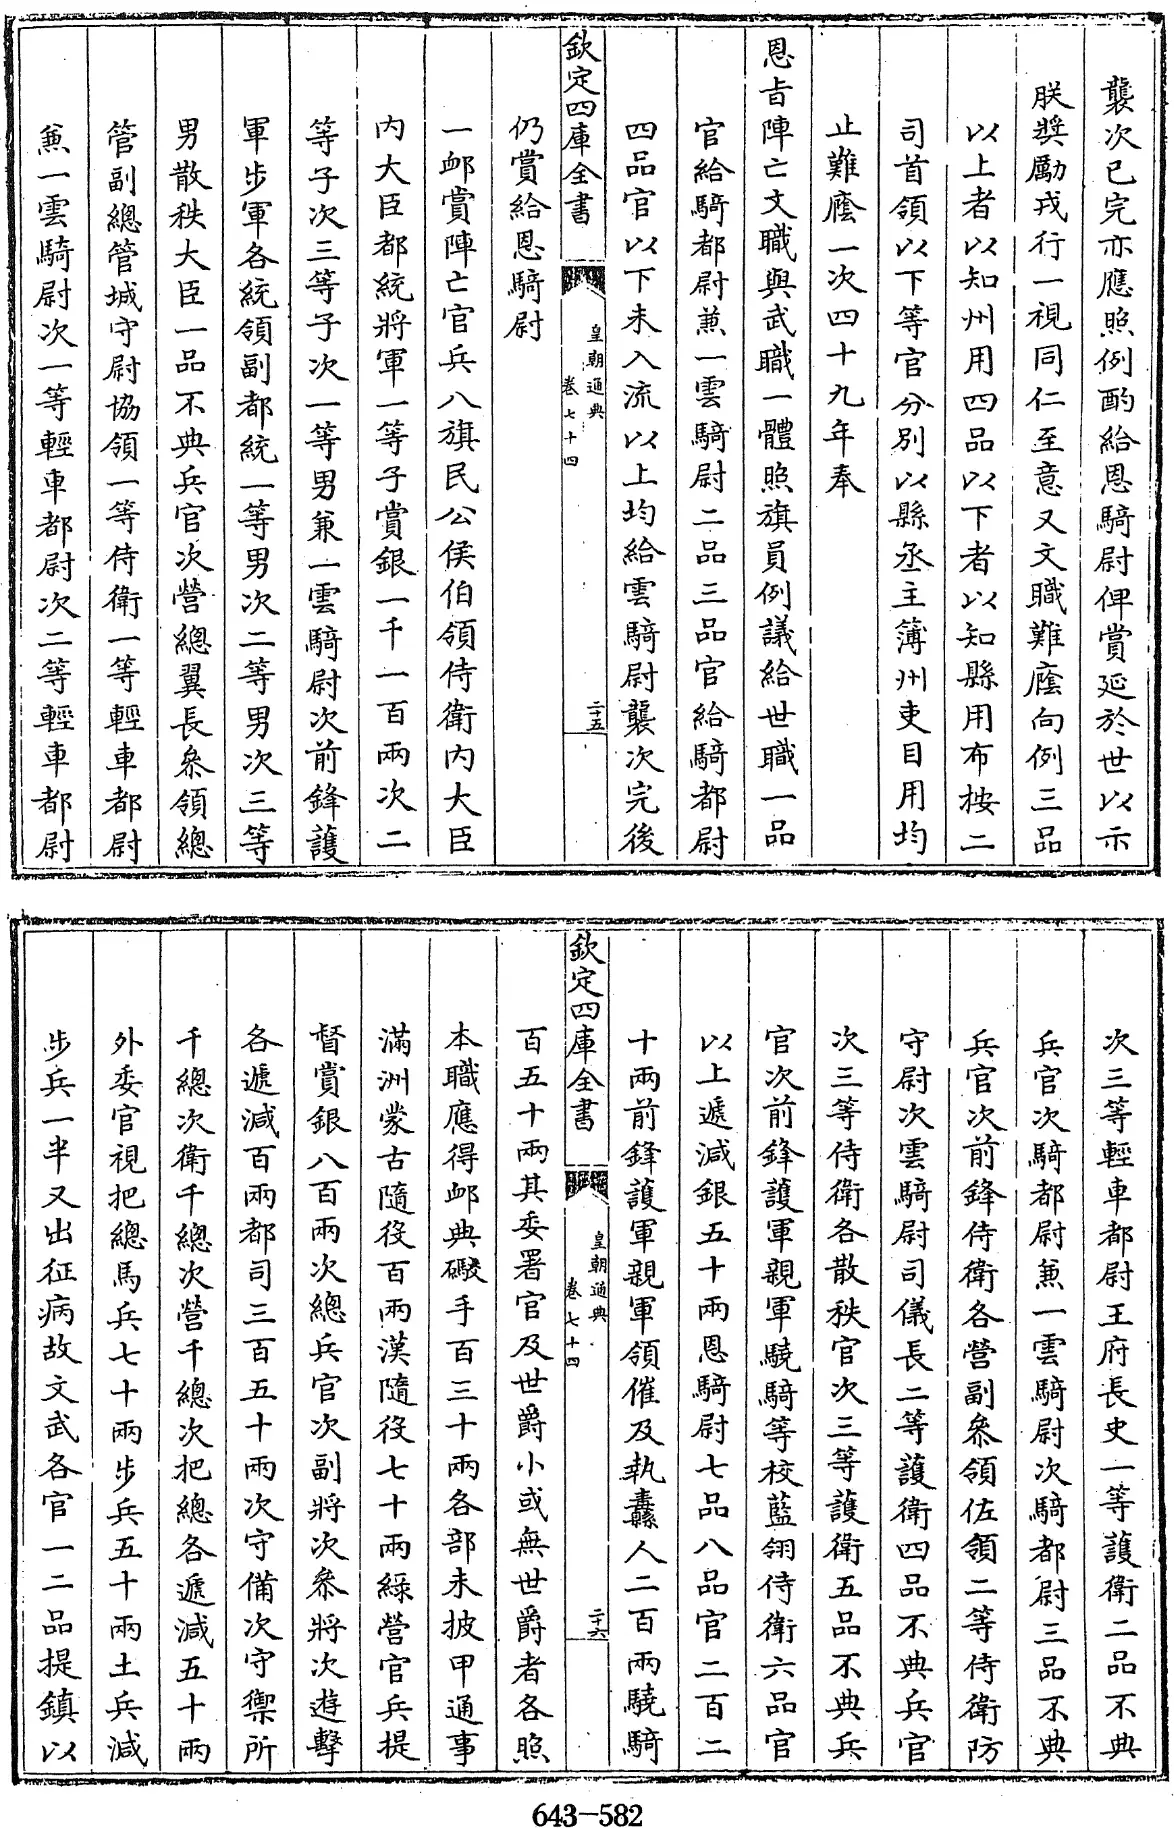 襲次已完亦應照例酌給恩騎尉俾賞延於世以示
朕奬勵戎行一視同仁至意又文職難廕向例三品
以上者以知州用四品以下者以知縣用布按二
司首領以下等官分別以縣丞主簿州吏目用均
止難廕一次四十九年奉
恩旨陣亡文職與武職一體照旗員例議給世職一品
官給騎都尉兼一雲騎尉二品三品官給騎都尉
四品官以下未入流以上均給雲騎尉襲次完後
欽定四庫全書
皇朝通典
卷七十四
二十五
仍賞給恩騎尉
一卹賞陣亡官兵八旗民公侯伯領侍衛内大臣
内大臣都統將軍一等子賞銀一千一百兩次二
等子次三等子次一等男兼一雲騎尉次前鋒護
軍步軍各統領副都統一等男次二等男次三等
男散秩大臣一品不典兵官次營總翼長叅領總
管副總管城守尉協領一等侍衛一等輕車都尉
兼一雲騎尉次一等輕車都尉次二等輕車都尉
次三等輕車都尉王府長史一等護衛二品不典
兵官次騎都尉兼一雲騎尉次騎都尉三品不典
兵官次前鋒侍衛各營副叅領佐領二等侍衛防
守尉次雲騎尉司儀長二等護衛四品不典兵官
次三等侍衛各散秩官次三等護衛五品不典兵
官次前鋒護軍親軍驍騎等校藍翎侍衛六品官
以上遞減銀五十兩恩騎尉七品八品官二百二
十兩前鋒護軍親軍領催及執纛人二百兩驍騎
欽定四庫全書
皇朝通典
卷七十四
二十六
百五十兩其委署官及世爵小或無世爵者各照
本職應得卹典礮手百三十兩各部未披甲通事
滿洲蒙古隨役百兩漢隨役七十兩綠營官兵提
督賞銀八百兩次總兵官次副將次叅將次遊擊
各遞減百兩都司三百五十兩次守備次守禦所
千總次衛千總次營千總次把總各遞減五十兩
外委官視把總馬兵七十兩步兵五十兩土兵減
步兵一半又出征病故文武各官一二品提鎮以
643-582